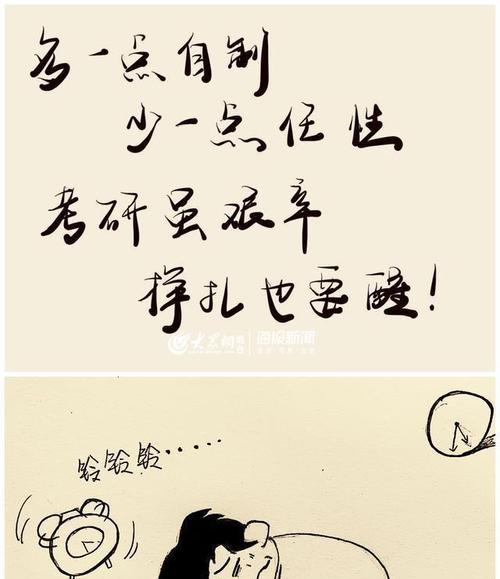 多一点自制
少一点任性
考研虽艰辛
挣扎也要醒！
大众网 海报新闻
铃铃铃·····